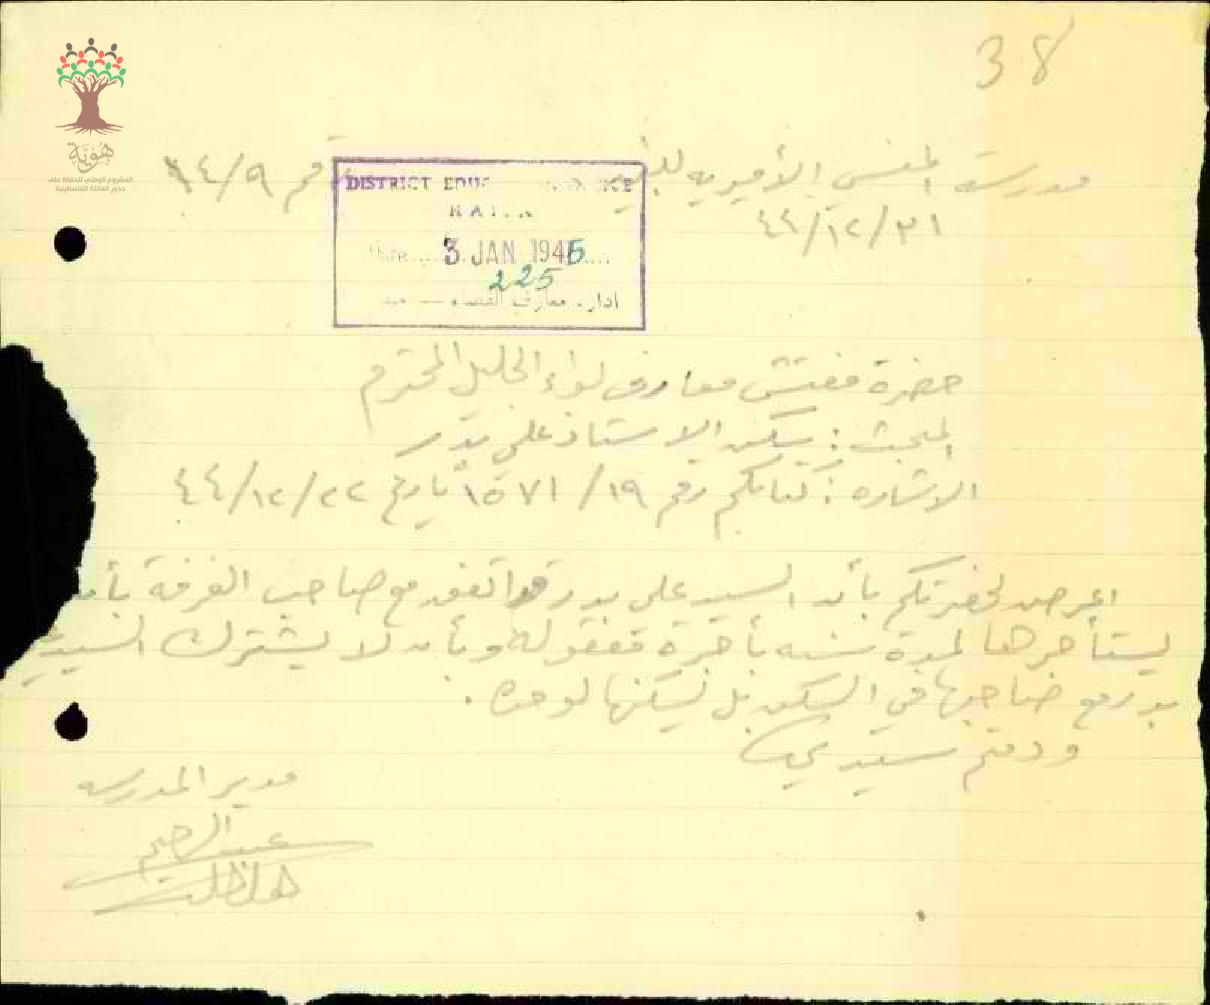 38
هُوِيَّة
المشروع الوطني للحفاظ على
جذور العائلة الفلسطينية
مدرسة المنسي الأميريه للبنين رقم ١٤/٩
٣١/١٢/٤٤
DISTRICT EDUC OFFICE
HAIFA
Date 3 JAN 1945
225
ادارة معارف القضاء
حضرة مفتش معارف لواء الجليل المحترم
المبحث : سكن الاستاذ علي بدر
الاشاره : كتابكم رقم ١٩/ ١٥٧١ تاريخ ٢٢/١٢/٤٤
اعرض لحضرتكم بأن السيد علي بدر قد اتفق مع صاحب الغرفة بأن
يستأجرها لمدة سنه بأجرة معقوله وبأن لا يشترك السيد
بدر مع صاحبها في السكن بل يسكنها لوحده .
ودمتم سيدي
مدير المدرسه
عبد الرحيم